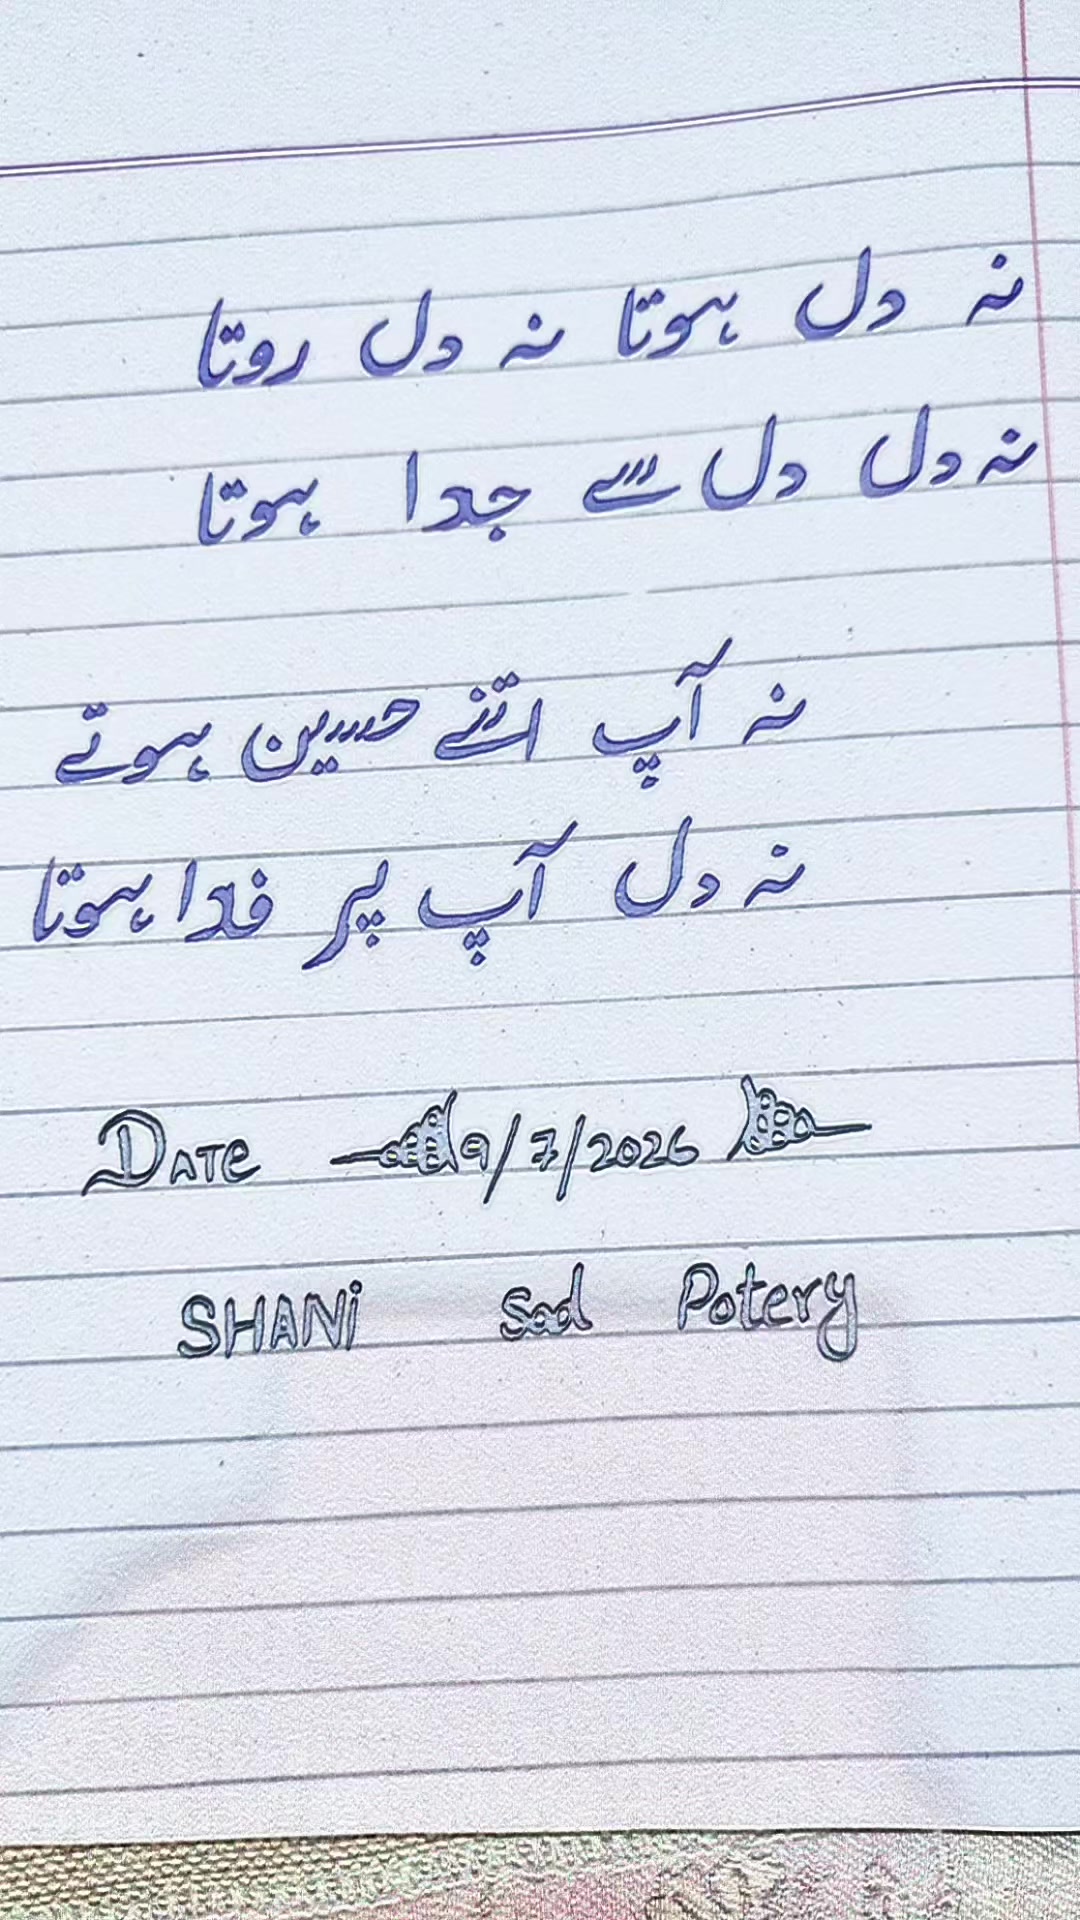 نہ دل ہوتا نہ دل روتا
نہ دل دل سے جدا ہوتا
نہ آپ اتنے حسین ہوتے
نہ دل آپ پر فدا ہوتا
DATE 9/7/2026
SHANi Sad Potery